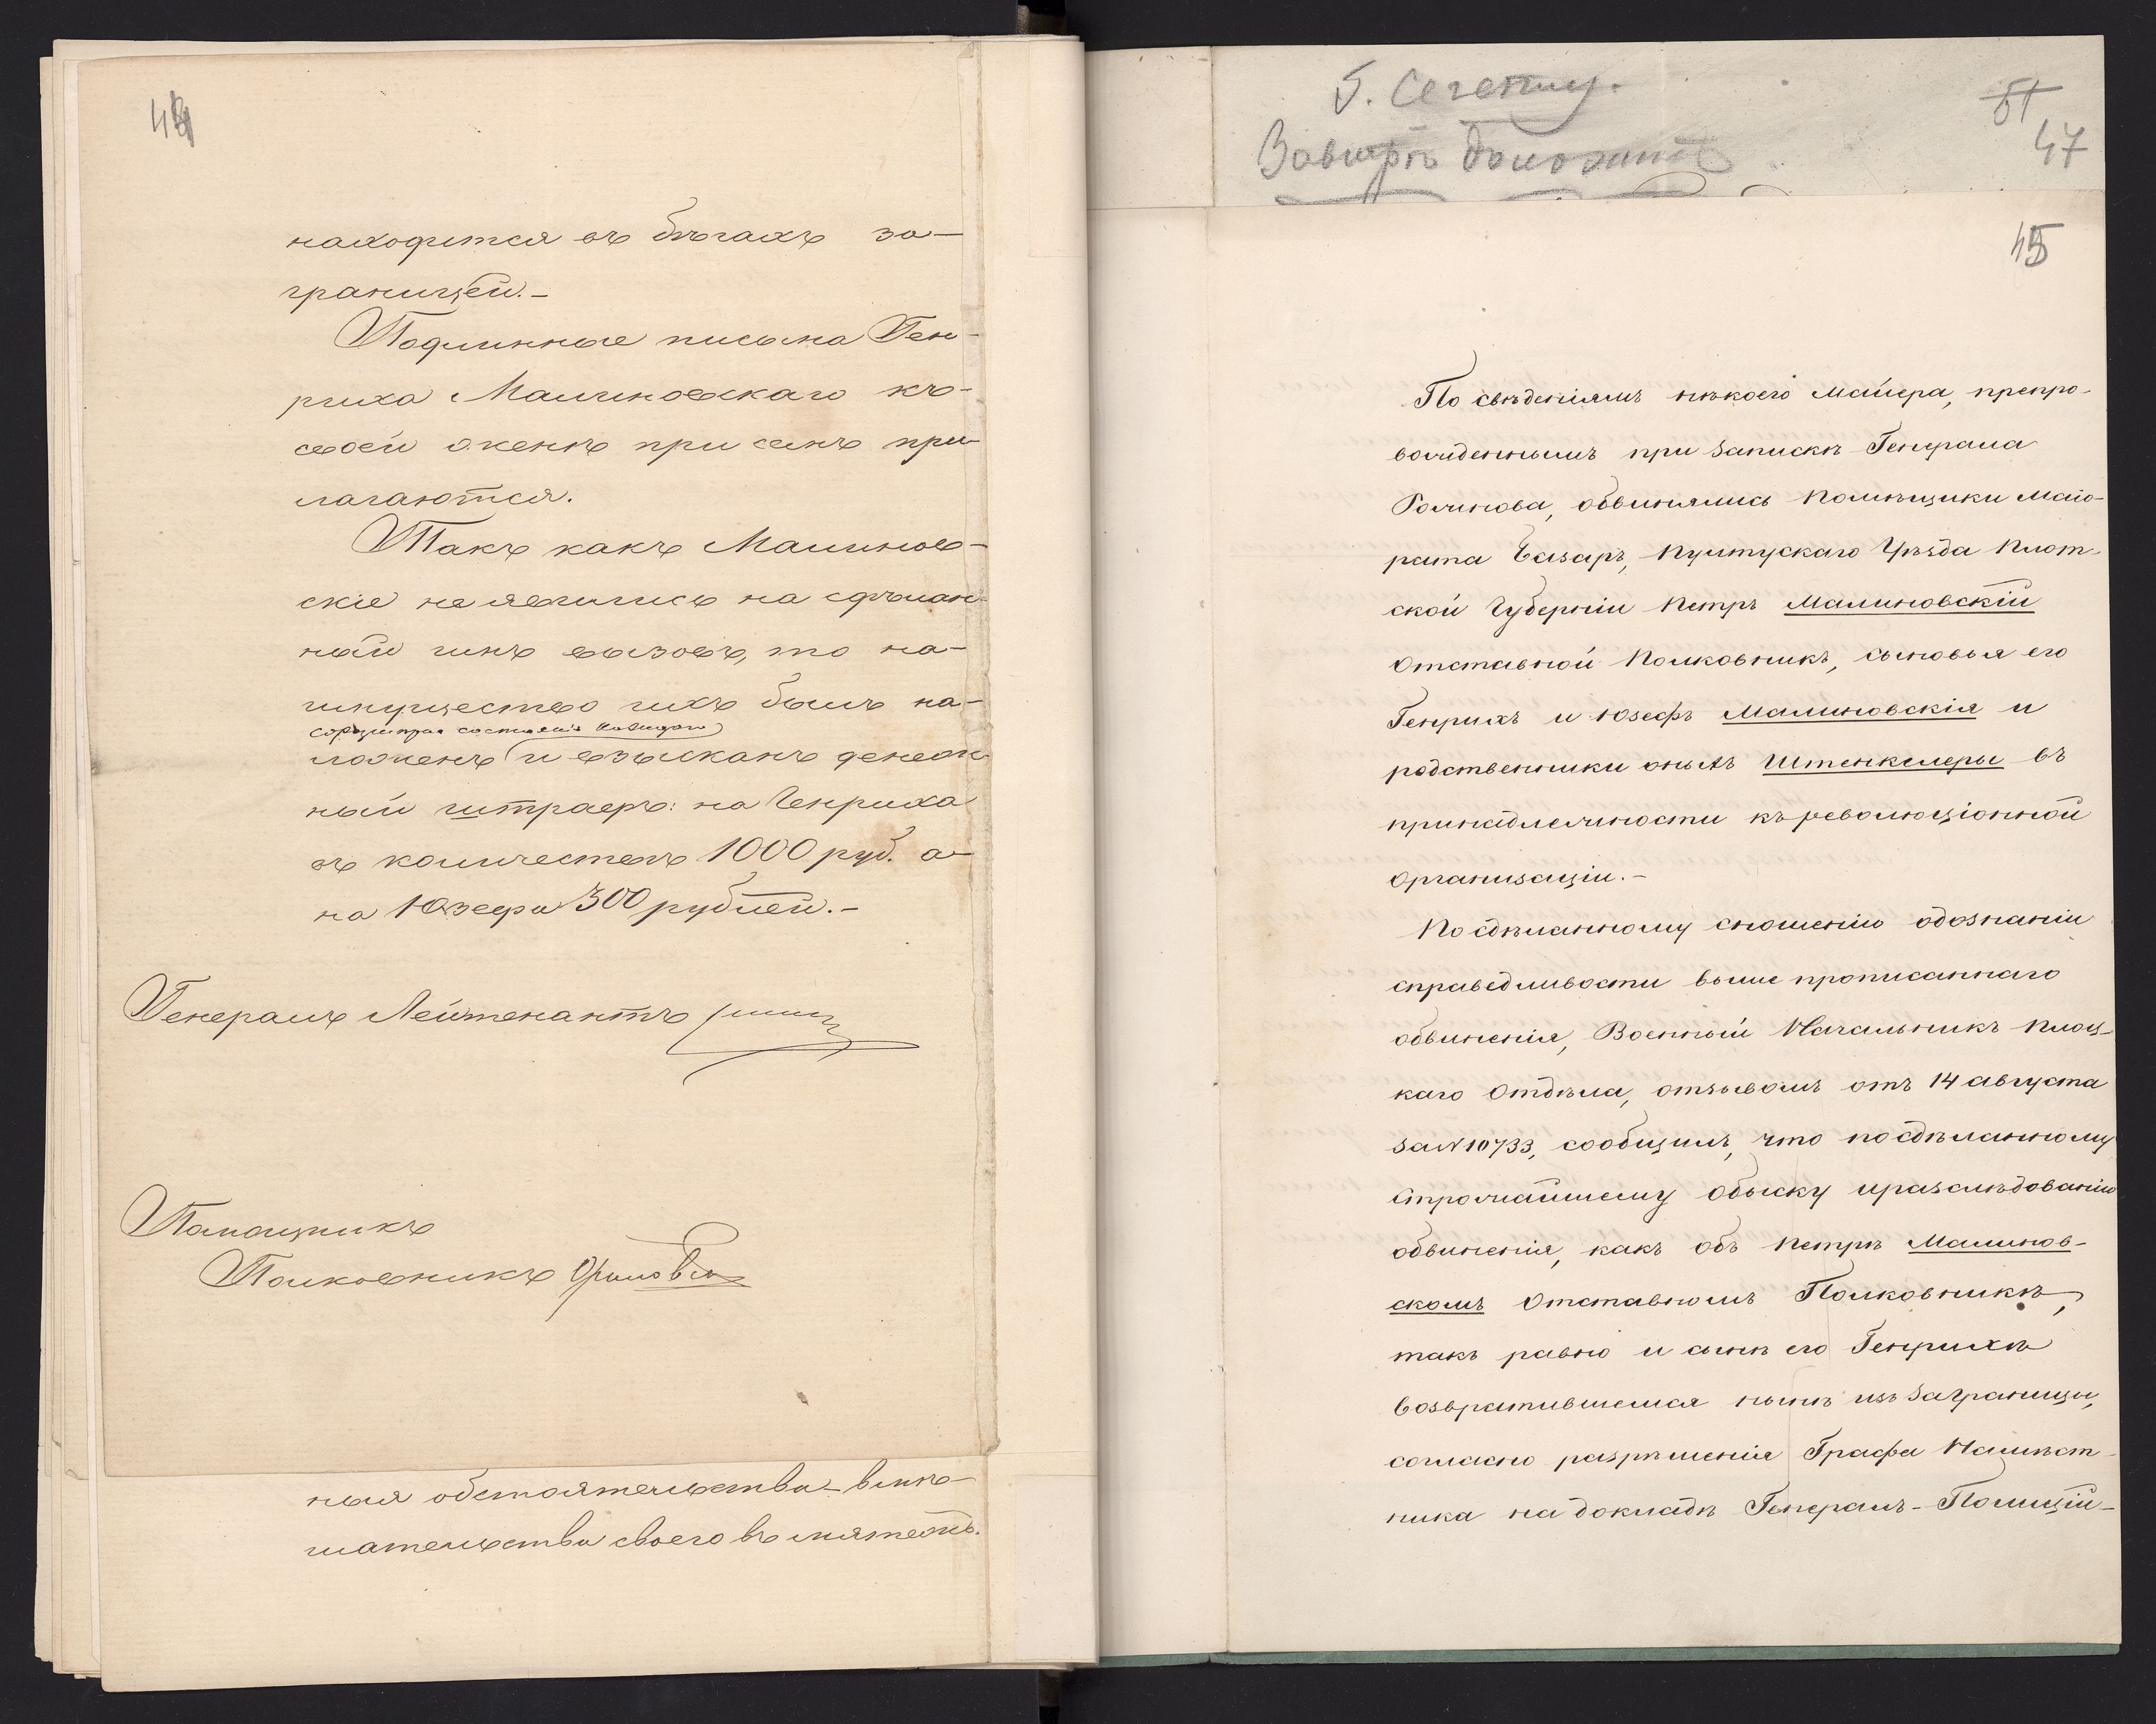 44
находится въ бѣгахъ за-
границей.-
Подлинные письма Ген-
риха Малиновскаго къ-
своей женѣ при семъ при-
лагаются.
Такъ какъ Малинов-
скіе не явились на сдѣлан-
ный имъ вызовъ, то на
имущество ихъ былъ на-
соразмѣрно состоянія каждаго
ложенъ и взысканъ денеж-
ный штрафъ: на Генриха
въ количествѣ 1000 руб. а-
на Юзефа 300 рублей.-
Генералъ Лейтенантъ
Помощникъ
Полковникъ
ныя обстоятельства вмѣ-
шательства своего въ мятежъ.
Завтра доложить
51
47
45
По свѣденіямъ нѣкоего Майера, препро-
вожденнымъ при запискѣ Генерала
Рожнова, обвинялись помѣщики Маіо-
рата Гузаръ, Пултускаго Уѣзда Плот-
ской Губерніи Петръ Малиновскій
отставной Полковникъ, сыновья его
Генрихъ и Юзефъ Малиновскія и
родственники оныхъ Штенкелеры въ
принадлежности къ революціонной
организаціи.-
По сдѣланному сношенію одознаніи
справедливости выше прописаннаго
обвиненія, Военный Начальникъ Плоц-
каго Отдѣла, отзывомъ отъ 14 августа
за N 10733, сообщилъ, что по сдѣланному
строжайшему обыску и разслѣдованію
обвиненія, какъ объ Петрѣ Малинов-
скомъ Отставномъ Полковникѣ,
такъ равно и сынѣ его Генрихѣ
возвратившемся нынѣ изъ Заграницы,
согласно разрѣшенія Графа Намѣст-
ника на докладѣ Генералъ-Полицій-